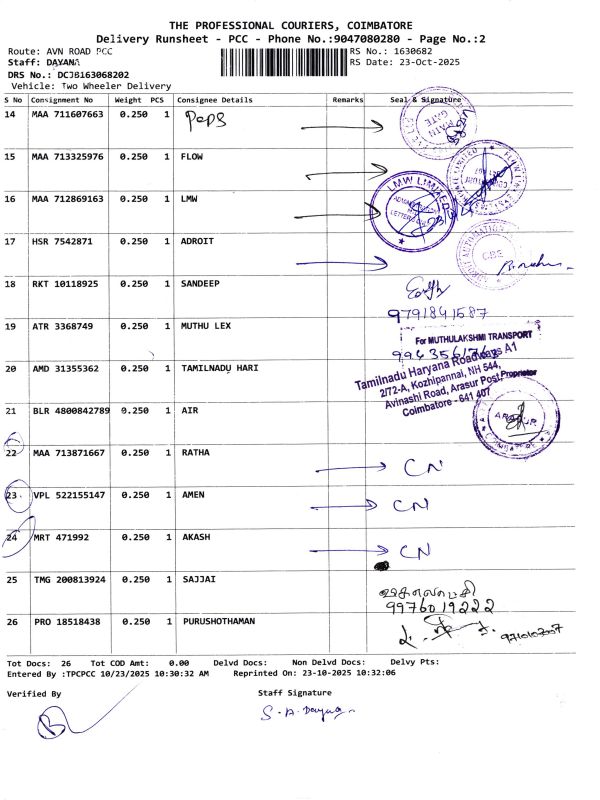 THE PROFESSIONAL COURIERS, COIMBATORE
Delivery Runsheet - PCC - Phone No.:9047080280 - Page No.:2
Route: AVN ROAD PCC RS No.: 1630682
Staff: DAYANA RS Date: 23-Oct-2025
DRS No.: DCJB163068202
Vehicle: Two Wheeler Delivery
S No Consignment No Weight PCS Consignee Details Remarks Seal & Signature
14 MAA 711607663 0.250 1 Peps
MAIN GATE
15 MAA 713325976 0.250 1 FLOW
16 MAA 712869163 0.250 1 LMW
LMW LIMITED
17 HSR 7542871 0.250 1 ADROIT
CBE
18 RKT 10118925 0.250 1 SANDEEP
9791841587
19 ATR 3368749 0.250 1 MUTHU LEX
For MUTHULAKSHMI TRANSPORT
Proprietor
20 AMD 31355362 0.250 1 TAMILNADU HARI
Tamilnadu Haryana Roadways A1
2/72-A, Kozhipannai, NH 544,
Avinashi Road, Arasur Post,
Coimbatore - 641 407
21 BLR 4800842789 0.250 1 AIR
ARASUR
22 MAA 713871667 0.250 1 RATHA CN
23 VPL 522155147 0.250 1 AMEN CN
24 MRT 471992 0.250 1 AKASH CN
25 TMG 200813924 0.250 1 SAJJAI
9976019222
26 PRO 18518438 0.250 1 PURUSHOTHAMAN
Tot Docs: 26 Tot COD Amt: 0.00 Delvd Docs: Non Delvd Docs: Delvy Pts:
Entered By :TPCPCC 10/23/2025 10:30:32 AM Reprinted On: 23-10-2025 10:32:06
Verified By Staff Signature